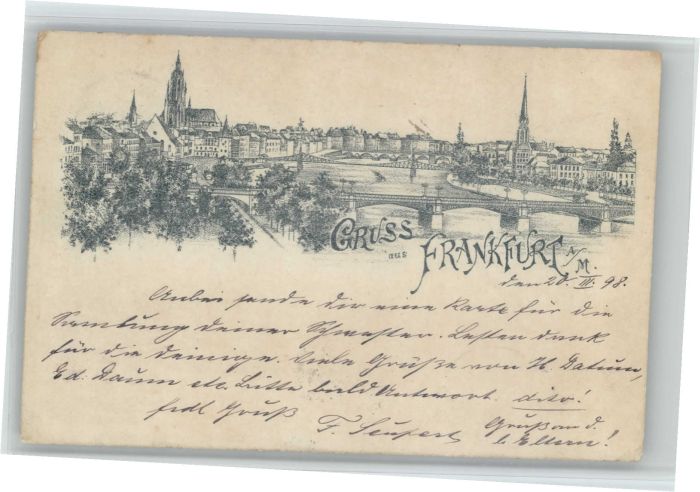 GRUSS
aus FRANKFURT a/M.
den 20. III. 98.
Anbei sende dir eine Karte für die
Samlung deiner Schwester. Besten dank
für die deinige. Viele Grüße von H. Datum,
Ed. Daum etc. Bitte bald Antwort. dito!
frdl Gruß
F. Seufert
Gruß an d.
l. Eltern!